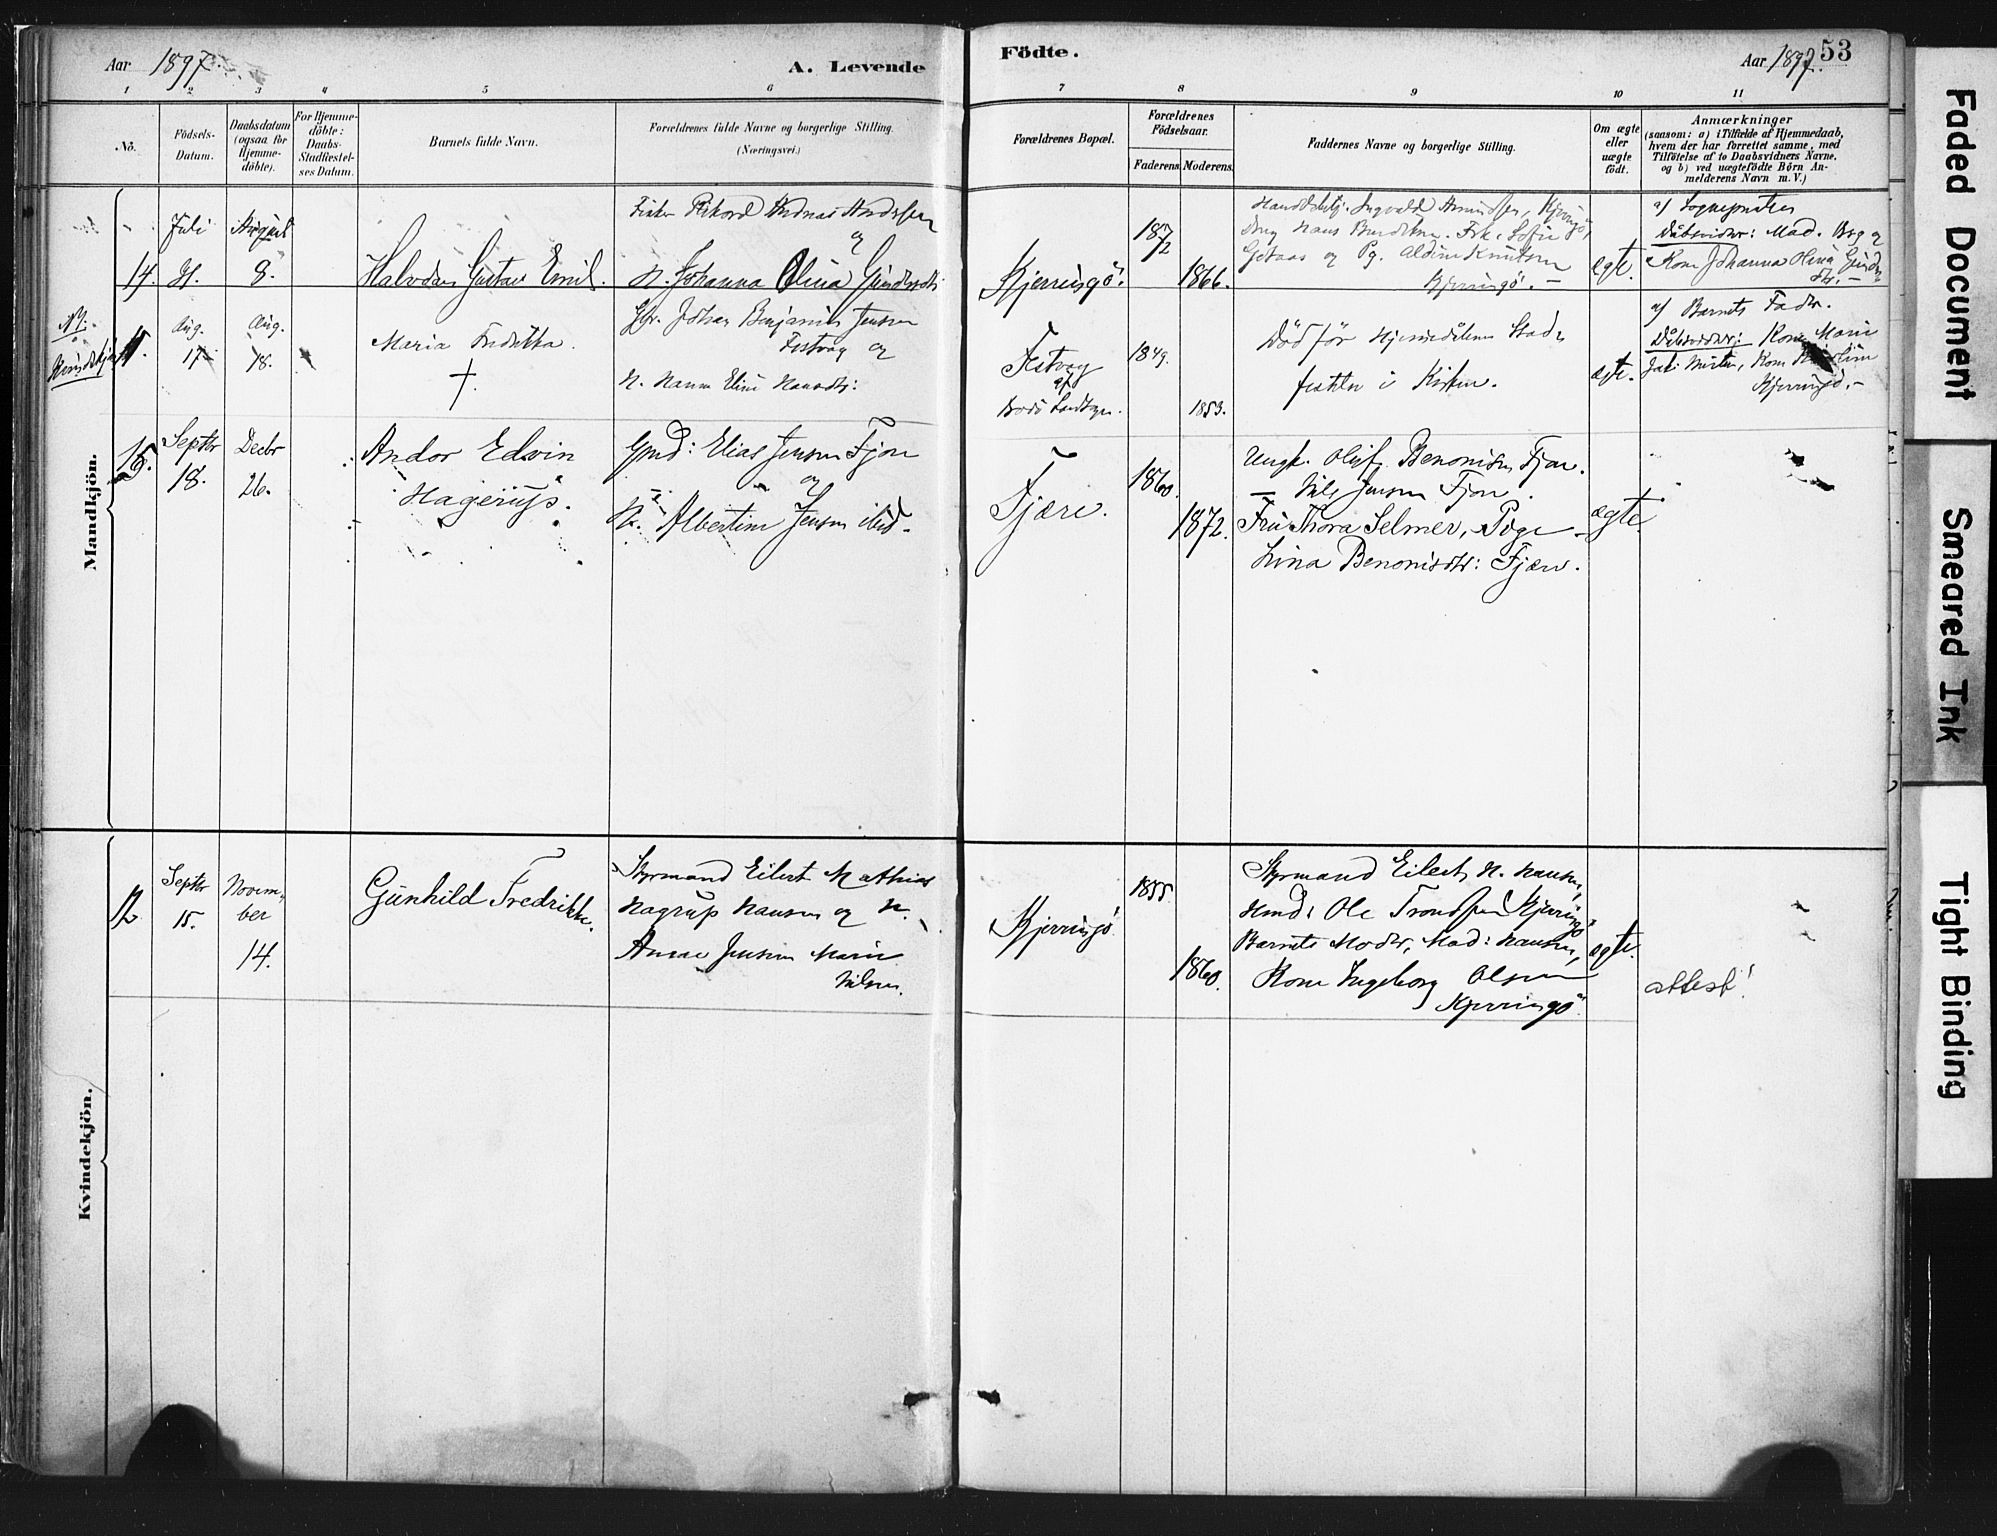 Aar 1897.
A. Levende
Födte.
Aar 1897.
53
1 2 3 4 5 6 7 8 9 10 11
No.
Födsels-
Datum.
Daabsdatum
(ogsaa for
Hjemme-
döbte).
For Hjemme-
döbte:
Daabs-
Stadfæstel-
ses Datum.
Barnets fulde Navn.
Forældrenes fulde Navne og borgerlige Stilling.
(Næringsvei.)
Forældrenes Bopæl.
Forældrenes
Födselsaar.
Faderens.
Moderens.
Faddernes Navne og borgerlige Stilling.
Om ægte
eller
uægte
født.
Anmærkninger
(saasom: a) i Tilfælde af Hjemmedaab,
hvem der har forrettet samme, med
Tilföielse af to Daabsvidners Navne,
og b) ved uægtefödte Börn An-
melderens Navn m. V.)
Mandkjön.
14.
Juli
August
8.
Halvdan Gustav Emil.
Fisker Rikard Andreas Andersen
og
H. Johanna Olina
Kjerringö.
1872
1866.
Ingvald Amundsen,
Hans
Aldine Knutsen
Kjerringö. —
ægte.
a/ Sognepresten
Dåbsvidner: Mad. Berg og
Kone Johanna Olina
Aug.
17
Aug.
18.
Maria Fredrikka
†
Johan Benjamin Jensen
Festvag og
H. Hanna Eline Hansdtr:
Festvag
Bodö Landsogn.
1849.
1853.
Död för Hjemmedåbens Stad-
festelse i Kirken.
ægte.
a/ Barnets Fader.
Dåbsvidner: Kone Marie
Kjerringö. —
15.
Septbr
18.
Decbr
26.
Andor Edvin
Hagerup.
Gmd: Elias Jensen Fjær
og
H. Albertine Jensen ibid.
Fjære.
1860.
1872.
Ungk. Oluf Benonisen Fjær.
— Nils Jensen Fjær.
Fru Thora Selmer, Pige
Lina Benonisdtr: Fjære.
ægte.
Kvindekjön.
12
Septbr
15.
Novem-
ber
14.
Gunhild Fredrikke.
Styrmand Eilert Mathias
Hagrup Hansen og H.
Anna Jensen Marie
Nilsen.
Kjerringö
1855
1860.
Styrmand Eilert H. Hansen,
Hmd: Ole Trondsen Kjerringö,
Barnets Moder, Mad: Hansen,
Kone Ingeborg Olsen
Kjerringö.
ægte.
attest!
Faded Document
Smeared Ink
Tight Binding